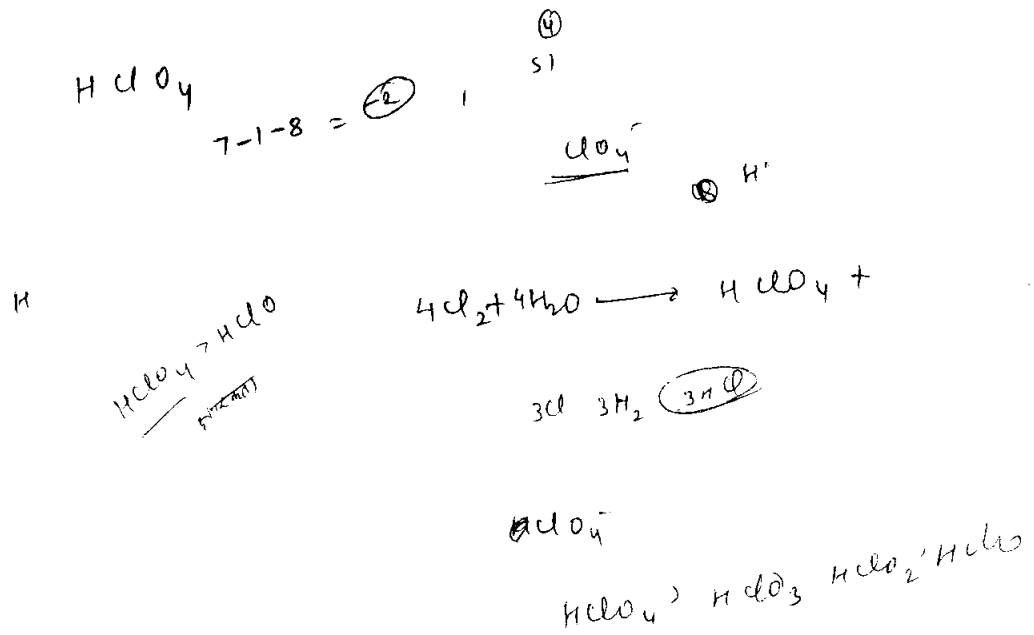 4
51
HClO4
7-1-8 = -2
ClO4-
H+
H
4Cl2 + 4H2O ⟶ HClO4 +
HClO4 > HClO
3Cl 3H2 3HCl
ClO4-
HClO4 > HClO3 HClO2 HClO